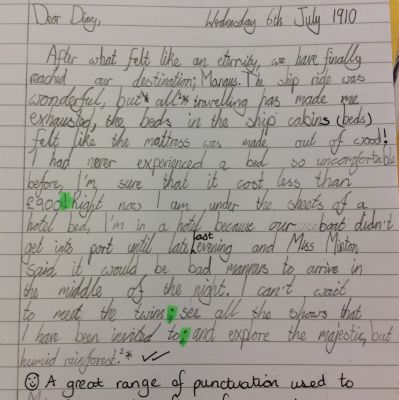 Dear Diary, Wednesday 6th July 1910
After what felt like an eternity, we have finally
reached our destination; Manaus. The ship ride was
wonderful, but* all* travelling has made me
exhausted, the beds in the ship cabins (beds)
felt like the mattress was made out of wood!
I had never experienced a bed so uncomfortable
before, I'm sure that it cost less than
£900! Right now I am under the sheets of a
hotel bed, I'm in a hotel because our boat didn't
get into port until late last evening and Miss Minton
said it would be bad manners to arrive in
the middle of the night. I can't wait
to meet the twins; see all the shows that
I have been invited to; and explore the majestic, but
humid rainforest.²* ✓✓
☺ A great range of punctuation used to